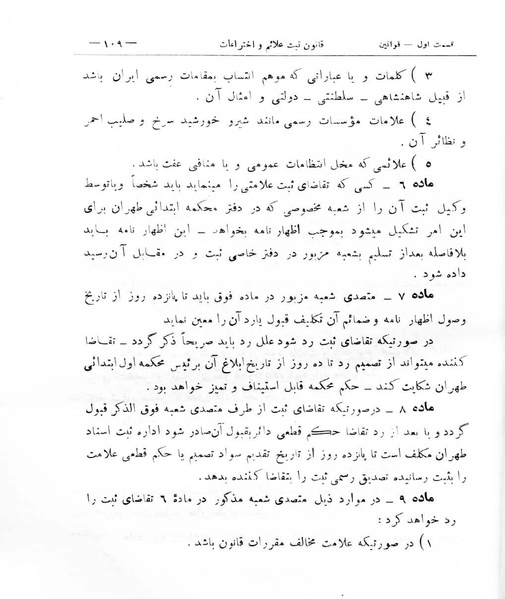 قسمت اول — قوانین
قانون ثبت علائم و اختراعات
— ۱۰۹ —
۳ ) کلمات و یا عباراتی که موهم انتساب بمقامات رسمی ایران باشد
از قبیل شاهنشاهی — سلطنتی — دولتی و امثال آن .
٤ ) علامات مؤسسات رسمی مانند شیرو خورشید سرخ و صلیب احمر
و نظائر آن .
۵ ) علائمی که مخل انتظامات عمومی و یا منافی عفت باشد .
ماده ۶ — کسی که تقاضای ثبت علامتی را مینماید باید شخصاً ویاتوسط
وکیل ثبت آن را از شعبه مخصوصی که در دفتر محکمه ابتدائی طهران برای
این امر تشکیل میشود بموجب اظهار نامه بخواهد — این اظهار نامه باید
بلافاصله بعداز تسلیم بشعبه مزبور در دفتر خاصی ثبت و در مقابل آن رسید
داده شود .
ماده ۷ — متصدی شعبه مزبور در ماده فوق باید تا پانزده روز از تاریخ
وصول اظهار نامه و ضمائم آن تکلیف قبول یارد آن را معین نماید
در صورتیکه تقاضای ثبت رد شود علل رد باید صریحاً ذکر گردد — تقاضا
کننده میتواند از تصمیم رد تا ده روز از تاریخ ابلاغ آن برئیس محکمه اول ابتدائی
طهران شکایت کند — حکم محکمه قابل استیناف و تمیز خواهد بود .
ماده ۸ — درصورتیکه تقاضای ثبت از طرف متصدی شعبه فوق الذکر قبول
گردد و یا بعد از رد تقاضا حکم قطعی دائر بقبول آن صادر شود اداره ثبت اسناد
طهران مکلف است تا پانزده روز از تاریخ تقدیم سواد تصمیم یا حکم قطعی علامت
را بثبت رسانیده تصدیق رسمی ثبت را بتقاضا کننده بدهد .
ماده ۹ — در موارد ذیل متصدی شعبه مذکور در مادۀ ۶ تقاضای ثبت را
رد خواهد کرد :
۱ ) در صورتیکه علامت مخالف مقررات قانون باشد .